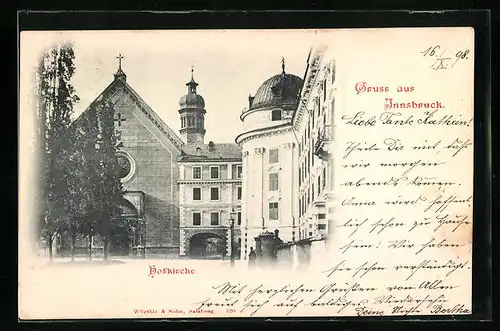 16/IX 98.
Gruss aus
Innsbruck.
Liebe Tante Kathien!
Theile Dir mit, daß
wir morgen
abends kommen.
Anna wird hoffent-
lich schon zu Hause
sein! Wir haben
sie schon verständigt.
Mit herzlichen Grüßen von Allen
freut sich auf baldiges Wiedersehen
Deine Nichte Bertha
Hofkirche
Würthle & Sohn, Salzburg